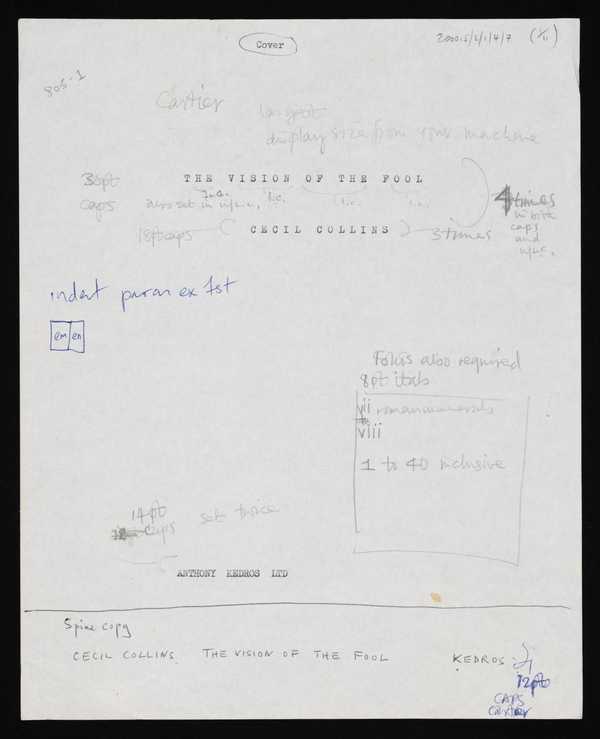 Cover
805-1
Cartier
largest
display size from your machine
36pt caps
THE VISION OF THE FOOL
also set in u/l.c.,
l.c.
l.c.
l.c.
4 times
in both
caps
and
u/l.c.
18pt caps
CECIL COLLINS
3 times
indent paras ex 1st
em/en
Folios also required
8pt itals
vii roman numerals
to
viii
1 to 40 inclusive
14pt
caps
set twice
ANTHONY KEDROS LTD
Spine copy
CECIL COLLINS. THE VISION OF THE FOOL KEDROS
12pt
CAPS
Cartier